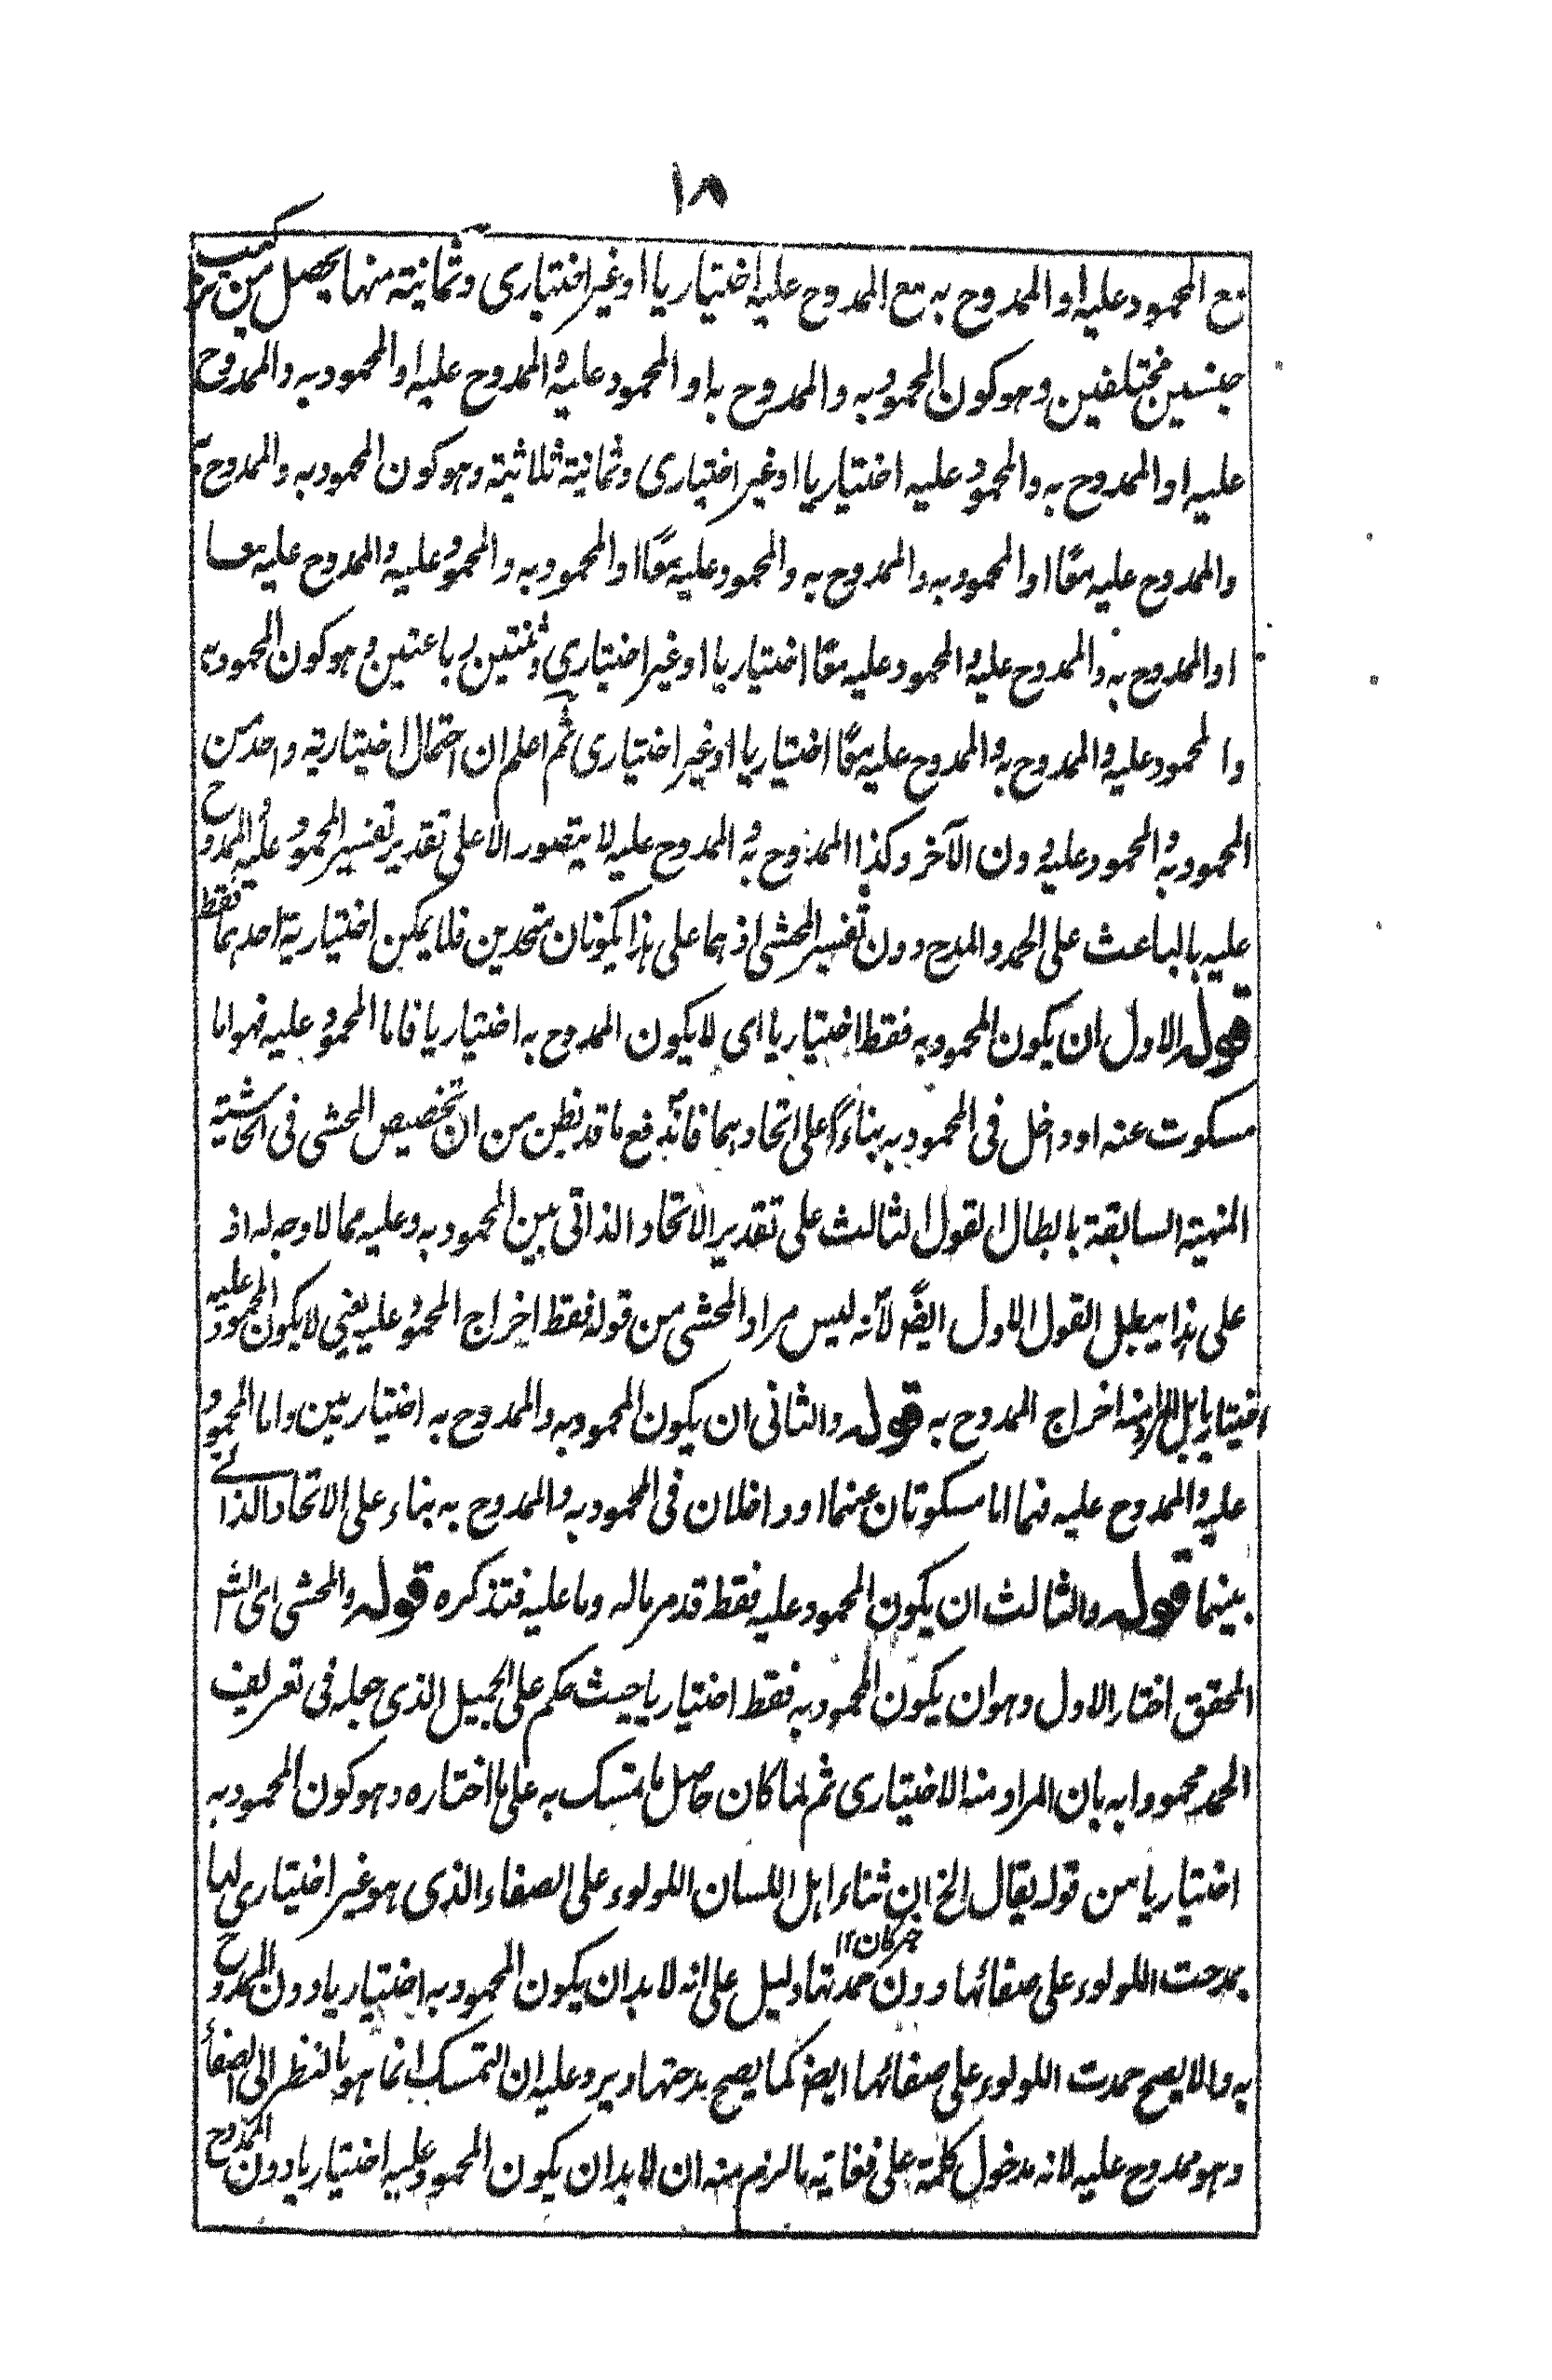 ١٨
مع المحمود عليه او الممدوح به مع الممدوح عليه اختياريا او غير اختيارى وثمانية منها يحصل من تركيب
جنسين مختلفين وهو كون المحمود به والممدوح به او المحمود عليه والممدوح عليه او المحمود به والممدوح
عليه او الممدوح به والمحمود عليه اختياريا او غير اختيارى وثمانية ثلاثية وهو كون المحمود به والممدوح به
والممدوح عليه معًا او المحمود به والممدوح به والمحمود عليه معًا او المحمود به والمحمود عليه والممدوح عليه معا
او الممدوح به والممدوح عليه والمحمود عليه معًا اختياريا او غير اختيارى وثنتين رباعتين وهو كون المحمود به
والمحمود عليه والممدوح به والممدوح عليه معًا اختياريا او غير اختيارى ثم اعلم ان احتمال اختيارية واحد من
المحمود به والمحمود عليه دون الآخر وكذا الممدوح به والممدوح عليه لا يتصور الا على تقدير تفسير المحمود عليه والممدوح
عليه بالباعث على الحمد والمدح دون تفسير المحشى اذ هما على هذا يكونان متحدين فلا يمكن اختيارية احدهما فقط
قوله الاول ان يكون المحمود به فقط اختياريا اى لا يكون الممدوح به اختياريا فاما المحمود عليه فهو اما
مسكوت عنه او داخل فى المحمود به بناءً على اتحادهما فاندفع ما قد يظن من ان تخصيص المحشى فى الحاشية
المنهية السابقة بابطال القول الثالث على تقدير الاتحاد الذاتى بين المحمود به وعليه مما لا وجه له اذ
على هذا يبطل القول الاول ايضًا لانه ليس مراد المحشى من قوله فقط اخراج المحمود عليه يعنى لا يكون المحمود عليه
اختياريا بل المراد منه اخراج الممدوح به قوله والثانى ان يكون المحمود به والممدوح به اختياريين واما المحمود
عليه والممدوح عليه فهما اما مسكوتان عنهما او داخلان فى المحمود به والممدوح به بناء على الاتحاد الذاتے
بينهما قوله والثالث ان يكون المحمود عليه فقط قد مر ما له وما عليه فتذكره قوله والمحشى اى الش
المحقق اختار الاول وهو ان يكون المحمود به فقط اختياريا حيث حكم على الجميل الذى جعله فى تعريف
الحمد محمودا به بان المراد منه الاختيارى ثم لما كان حاصل ما تمسك به على ما اختاره وهو كون المحمود به
اختياريا من قوله يقال الخ ان ثناء اهل اللسان اللولوء على الصفاء الذى هو غير اختيارى لها
بمدحت اللولوء على صفائها دون حمدتها دليل على انه لا بد ان يكون المحمود به اختياريا دون الممدوح
خبر كان ١٢
به والا يصح حمدت اللولوء على صفائها ايضا كما يصح مدحتها ويرد عليه ان التمسك انما هو بالنظر الى الصفاء
وهو ممدوح عليه لانه مدخول كلمة على فغاية ما لزم منه ان لا بد ان يكون المحمود عليه اختياريا دون الممدوح